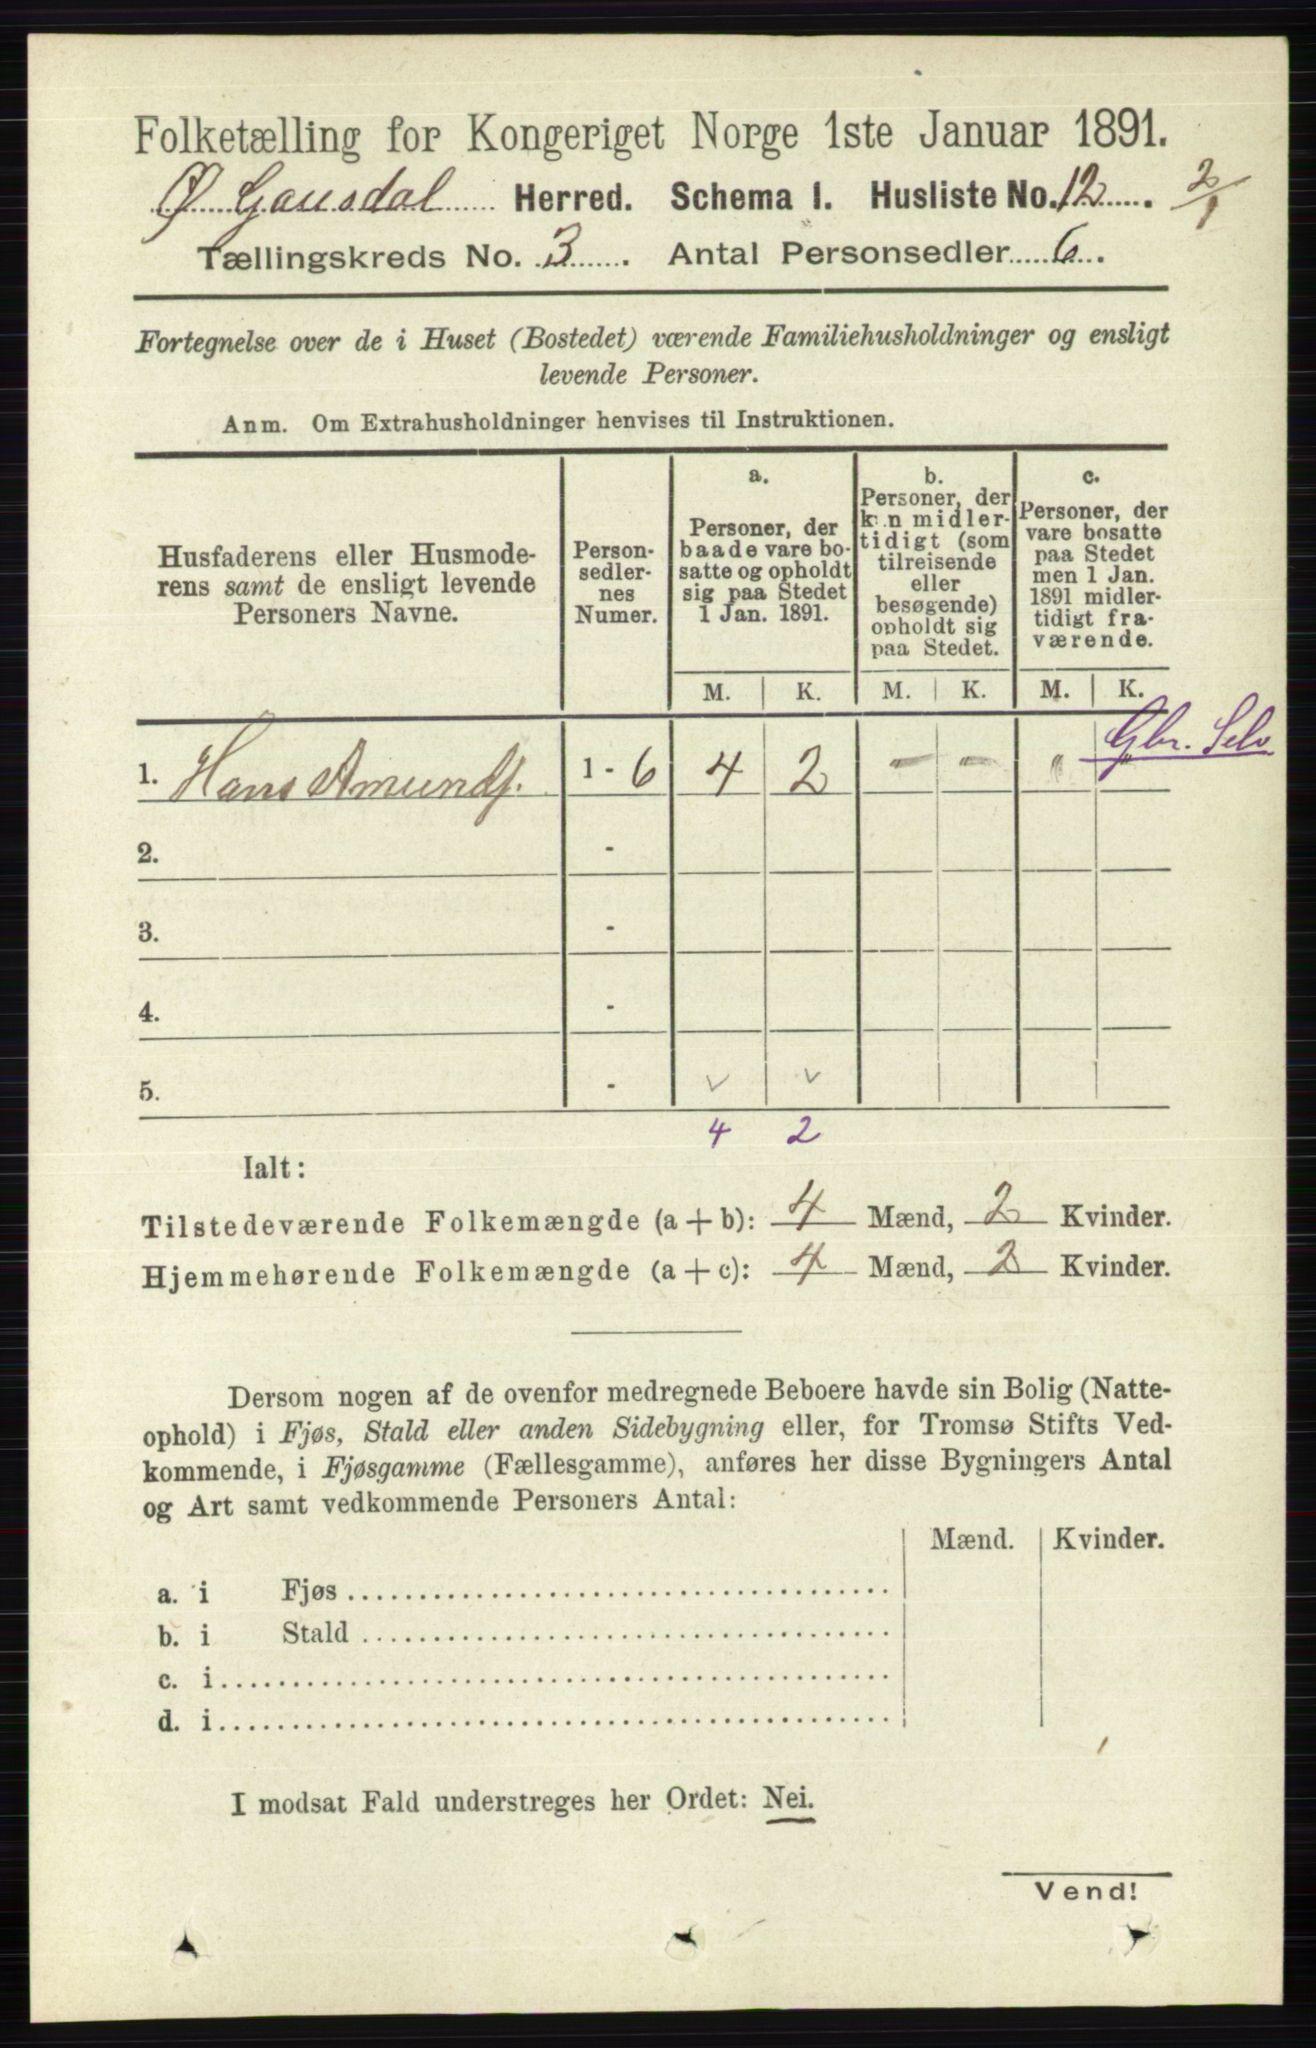 Folketælling for Kongeriget Norge 1ste Januar 1891.
Ø. Gausdal Herred. Schema I. Husliste No. 12. 2/1
Tællingskreds No. 3. Antal Personsedler 6.
Fortegnelse over de i Huset (Bostedet) værende Familiehusholdninger og ensligt
levende Personer.
Anm. Om Extrahusholdninger henvises til Instruktionen.
Husfaderens eller Husmode-
rens samt de ensligt levende
Personers Navne.
Person-
sedler-
nes
Numer.
a.
Personer, der
baade vare bo-
satte og opholdt
sig paa Stedet
1 Jan. 1891.
b.
Personer, der
kun midler-
tidigt (som
tilreisende
eller
besøgende)
opholdt sig
paa Stedet.
c.
Personer, der
vare bosatte
paa Stedet
men 1 Jan.
1891 midler-
tidigt fra-
værende.
M. K. M. K. M. K.
Gbr. Selv
1. Hans Amunds. 1 - 6 4 2 - - " "
2. -
3. -
4. -
5. - v v
4 2
Ialt:
Tilstedeværende Folkemængde (a + b): 4 Mænd, 2 Kvinder.
Hjemmehørende Folkemængde (a + c): 4 Mænd, 2 Kvinder.
Dersom nogen af de ovenfor medregnede Beboere havde sin Bolig (Natte-
ophold) i Fjøs, Stald eller anden Sidebygning eller, for Tromsø Stifts Ved-
kommende, i Fjøsgamme (Fællesgamme), anføres her disse Bygningers Antal
og Art samt vedkommende Personers Antal:
Mænd. Kvinder.
a. i Fjøs
b. i Stald
c. i
d. i
I modsat Fald understreges her Ordet: Nei.
Vend!